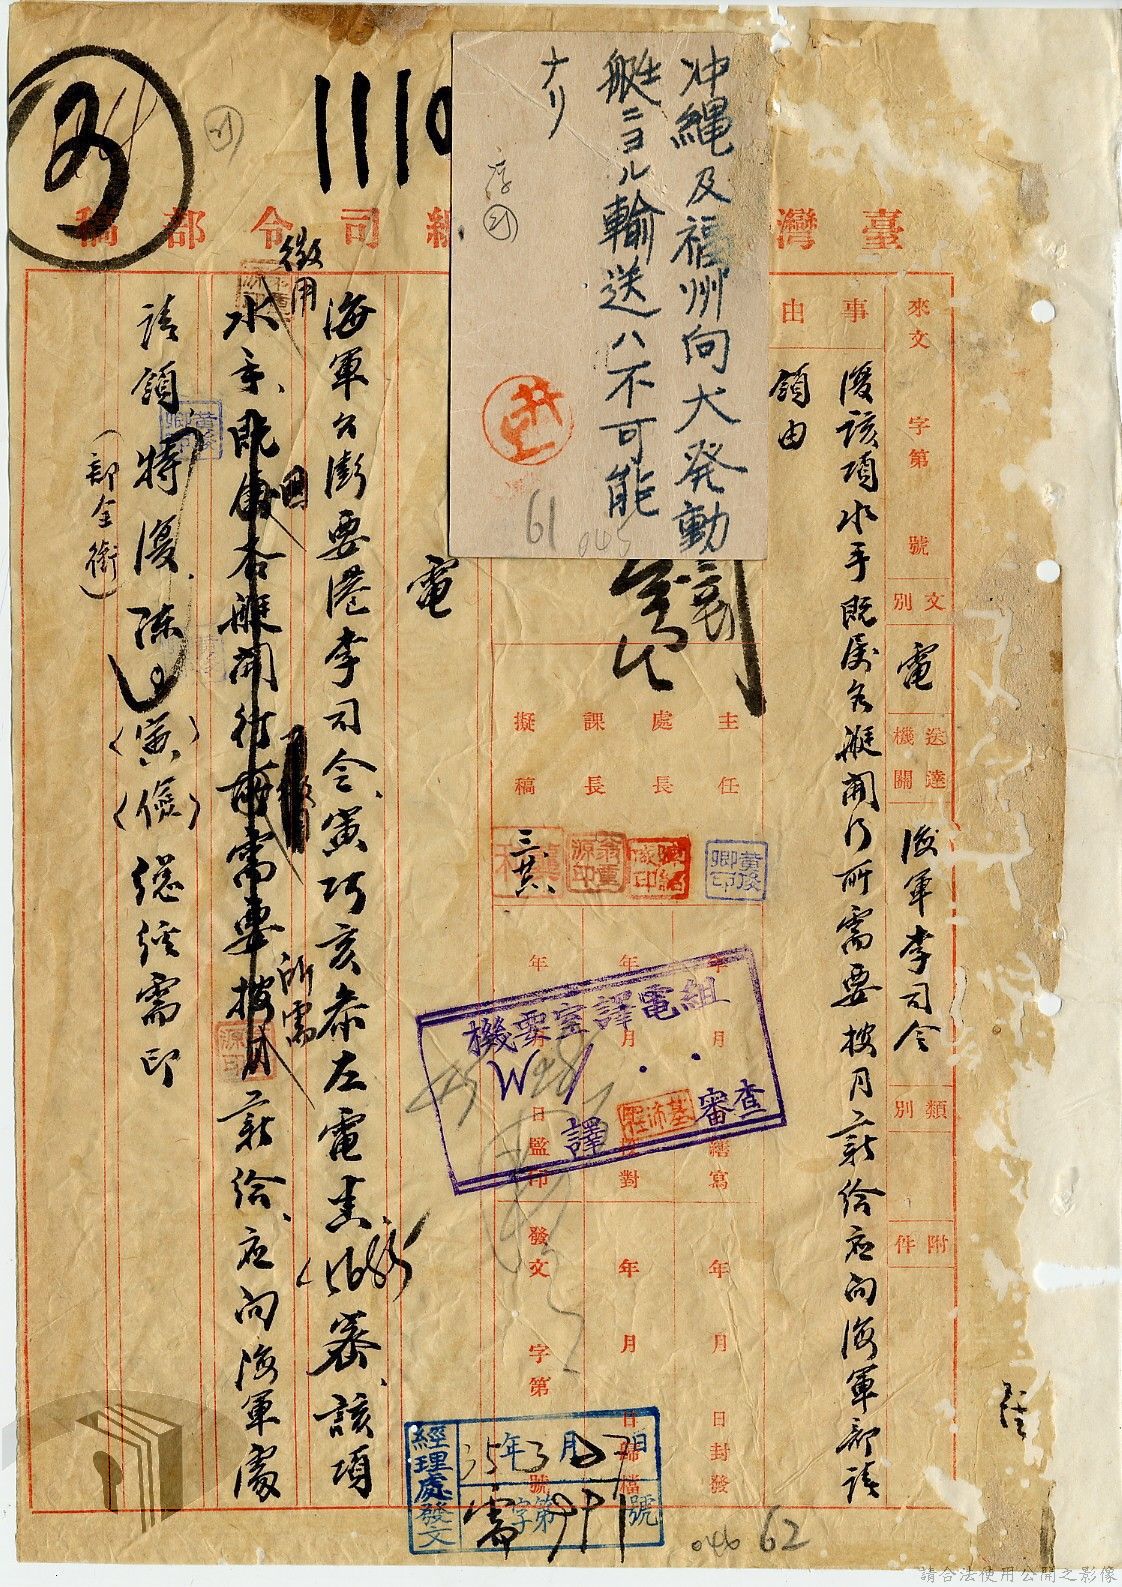 1110
沖縄及福州向大発動
艇ニヨル輸送ハ不可能
ナリ
61
045
臺灣
總司令部稿
來文 字第 號
文別
電
送達機關
海軍李司令
類別
附件
事由
復該項水手既屬各艇開行所需要按月薪給應向海軍部請
領由
主任
處長
課長
擬稿
黃俊卿印
年 月 日繕寫
年 月 日校對
年 月 日監印
年 月 日封發
年 月 日歸檔
發文 字第 號
機要室譯電組
譯
審查
電
海軍公澎要港李司令、寅巧亥泰左電悉、密、該項
徵用
水手、既屬各艇開行所需要按月薪給、應向海軍處
所需
請領、特復、陳
〈寅〉〈儉〉總經需印
(部全銜)
經理處發文
35年3月27日
需字第991號
046
62
請合法使用公開之影像